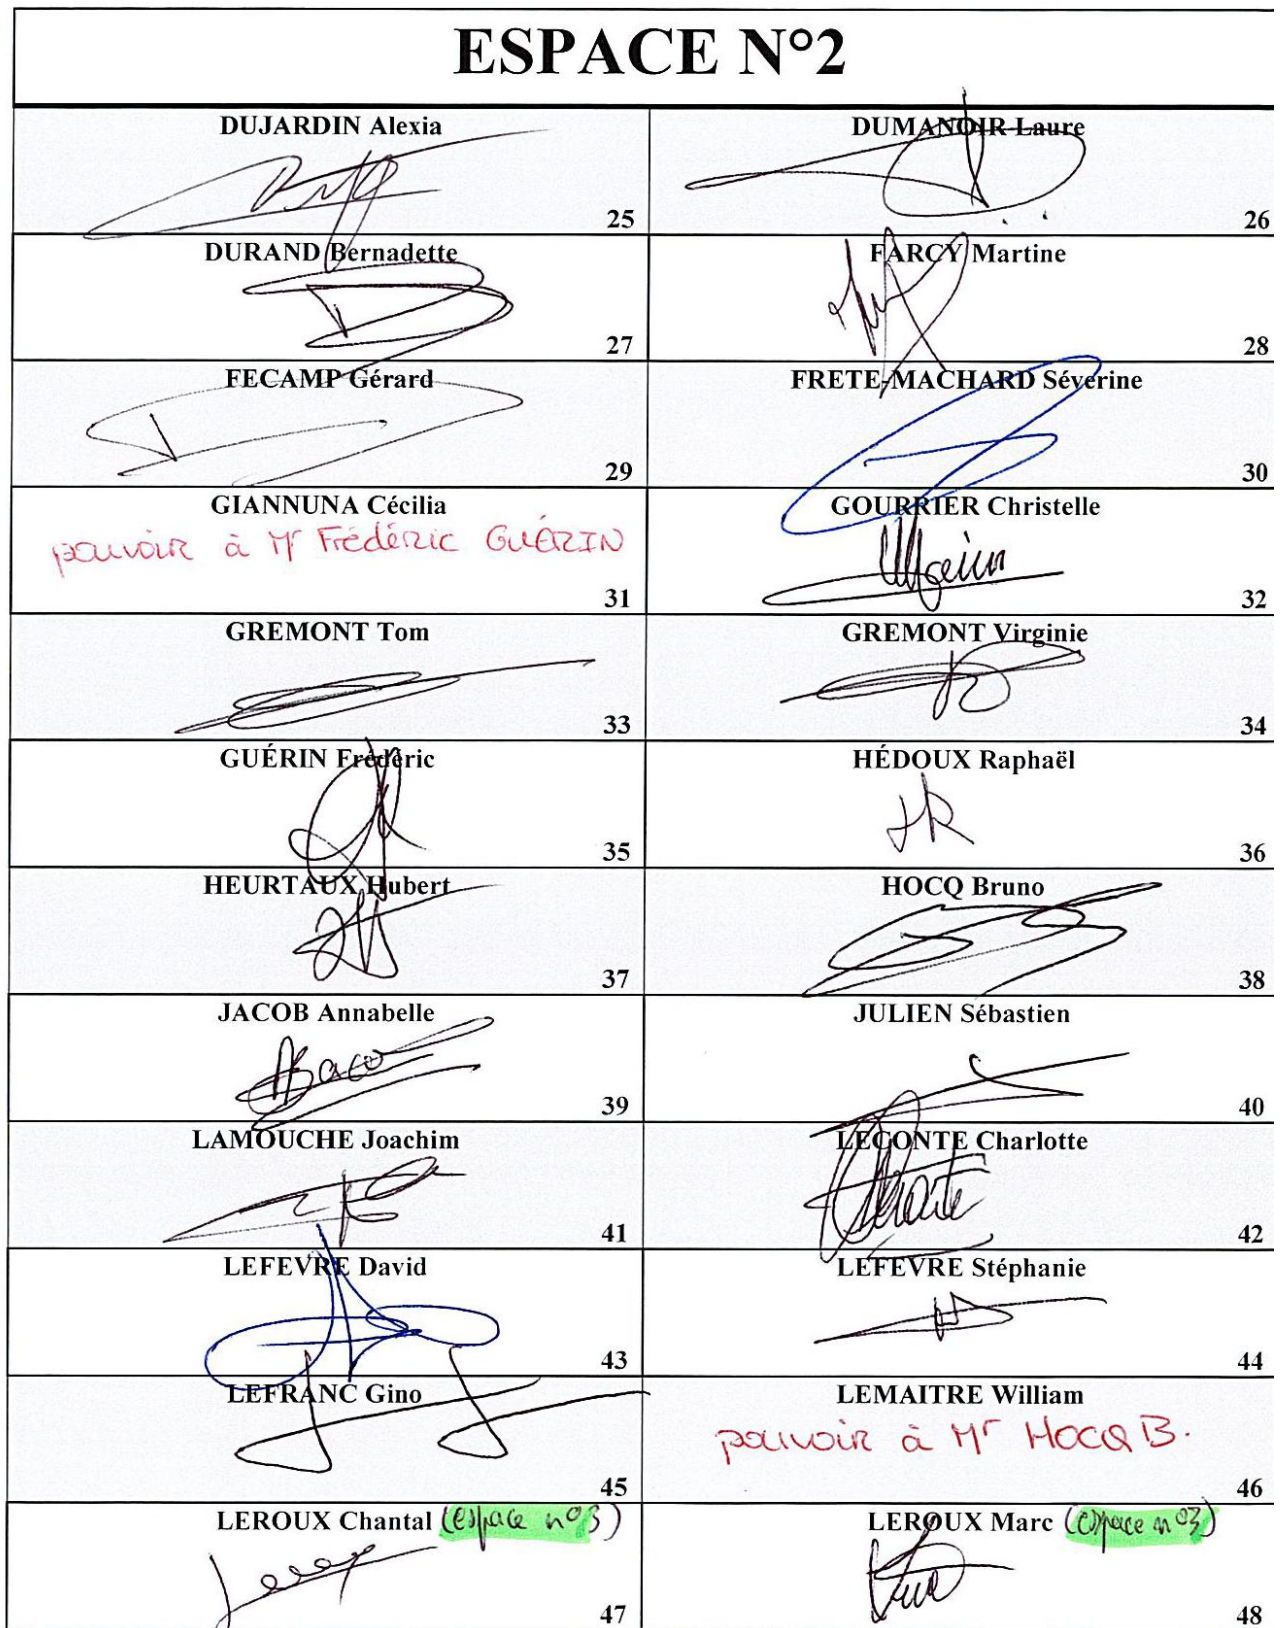 ESPACE N°2
DUJARDIN Alexia
25
DUMANOIR Laure
26
DURAND Bernadette
27
FARCY Martine
28
FECAMP Gérard
29
FRETE-MACHARD Séverine
30
GIANNUNA Cécilia
pouvoir à Mr Frédéric GUÉRIN
31
GOURRIER Christelle
32
GREMONT Tom
33
GREMONT Virginie
34
GUÉRIN Frédéric
35
HÉDOUX Raphaël
36
HEURTAUX Hubert
37
HOCQ Bruno
38
JACOB Annabelle
39
JULIEN Sébastien
40
LAMOUCHE Joachim
41
LECONTE Charlotte
42
LEFEVRE David
43
LEFEVRE Stéphanie
44
LEFRANC Gino
45
LEMAITRE William
pouvoir à Mr HOCQ B.
46
LEROUX Chantal (espace n°3)
47
LEROUX Marc (espace n°3)
48